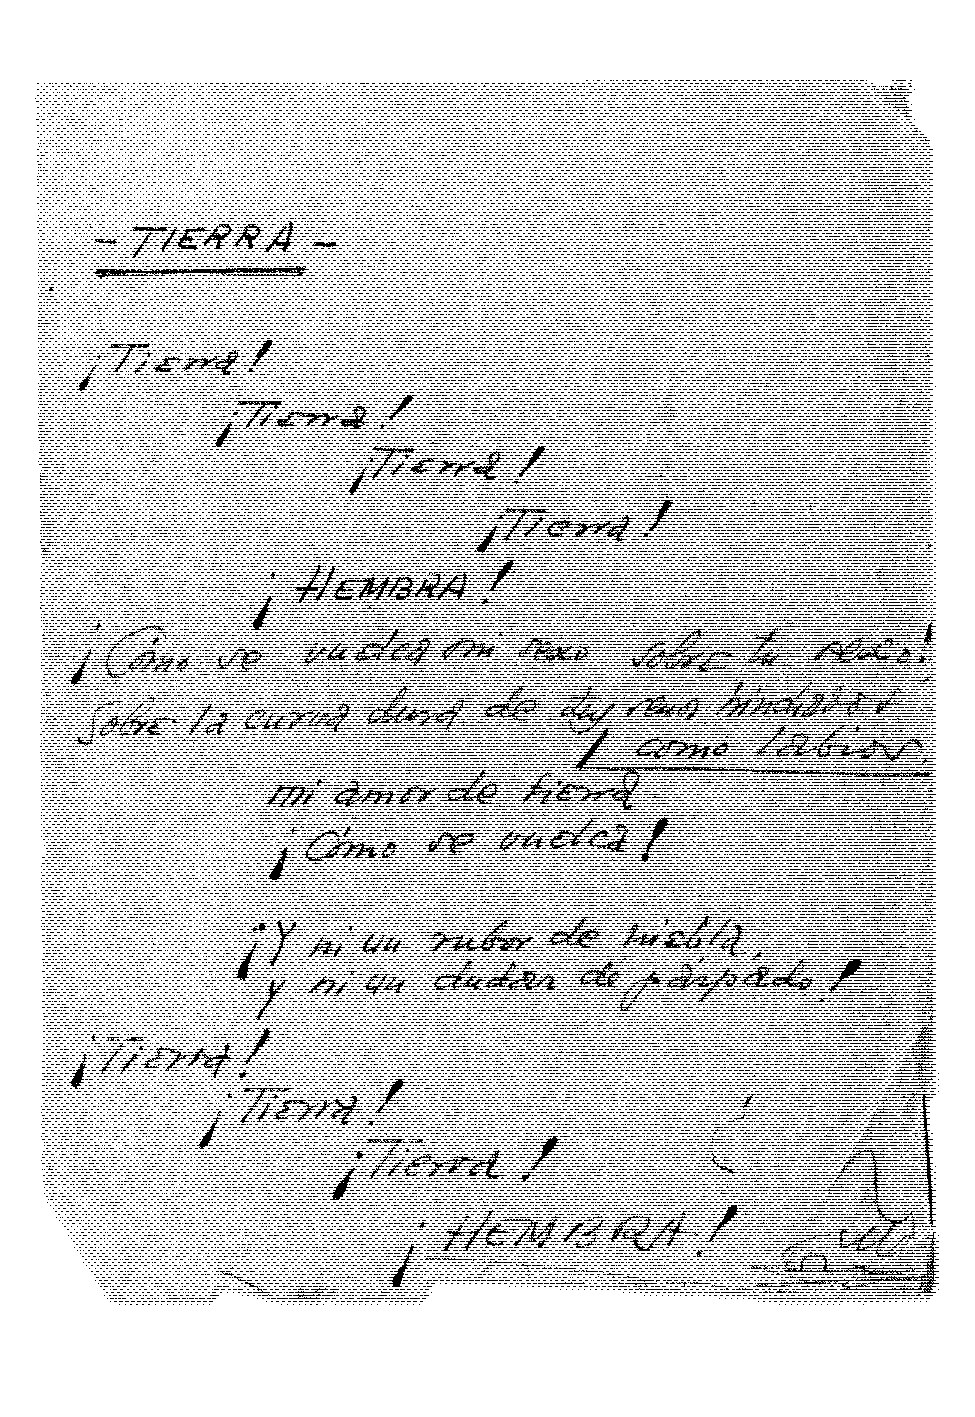 - TIERRA -
¡Tierra!
¡Tierra!
¡Tierra!
¡Tierra!
¡HEMBRA!
¡Cómo se vuelca mi sexo sobre tu sexo!
Sobre la curva dura de tus
como labios
mi amor de tierra
¡Cómo se vuelca!
¡Y ni un rubor de niebla,
y ni un dudar de párpado!
¡Tierra!
¡Tierra!
¡Tierra!
¡HEMBRA!